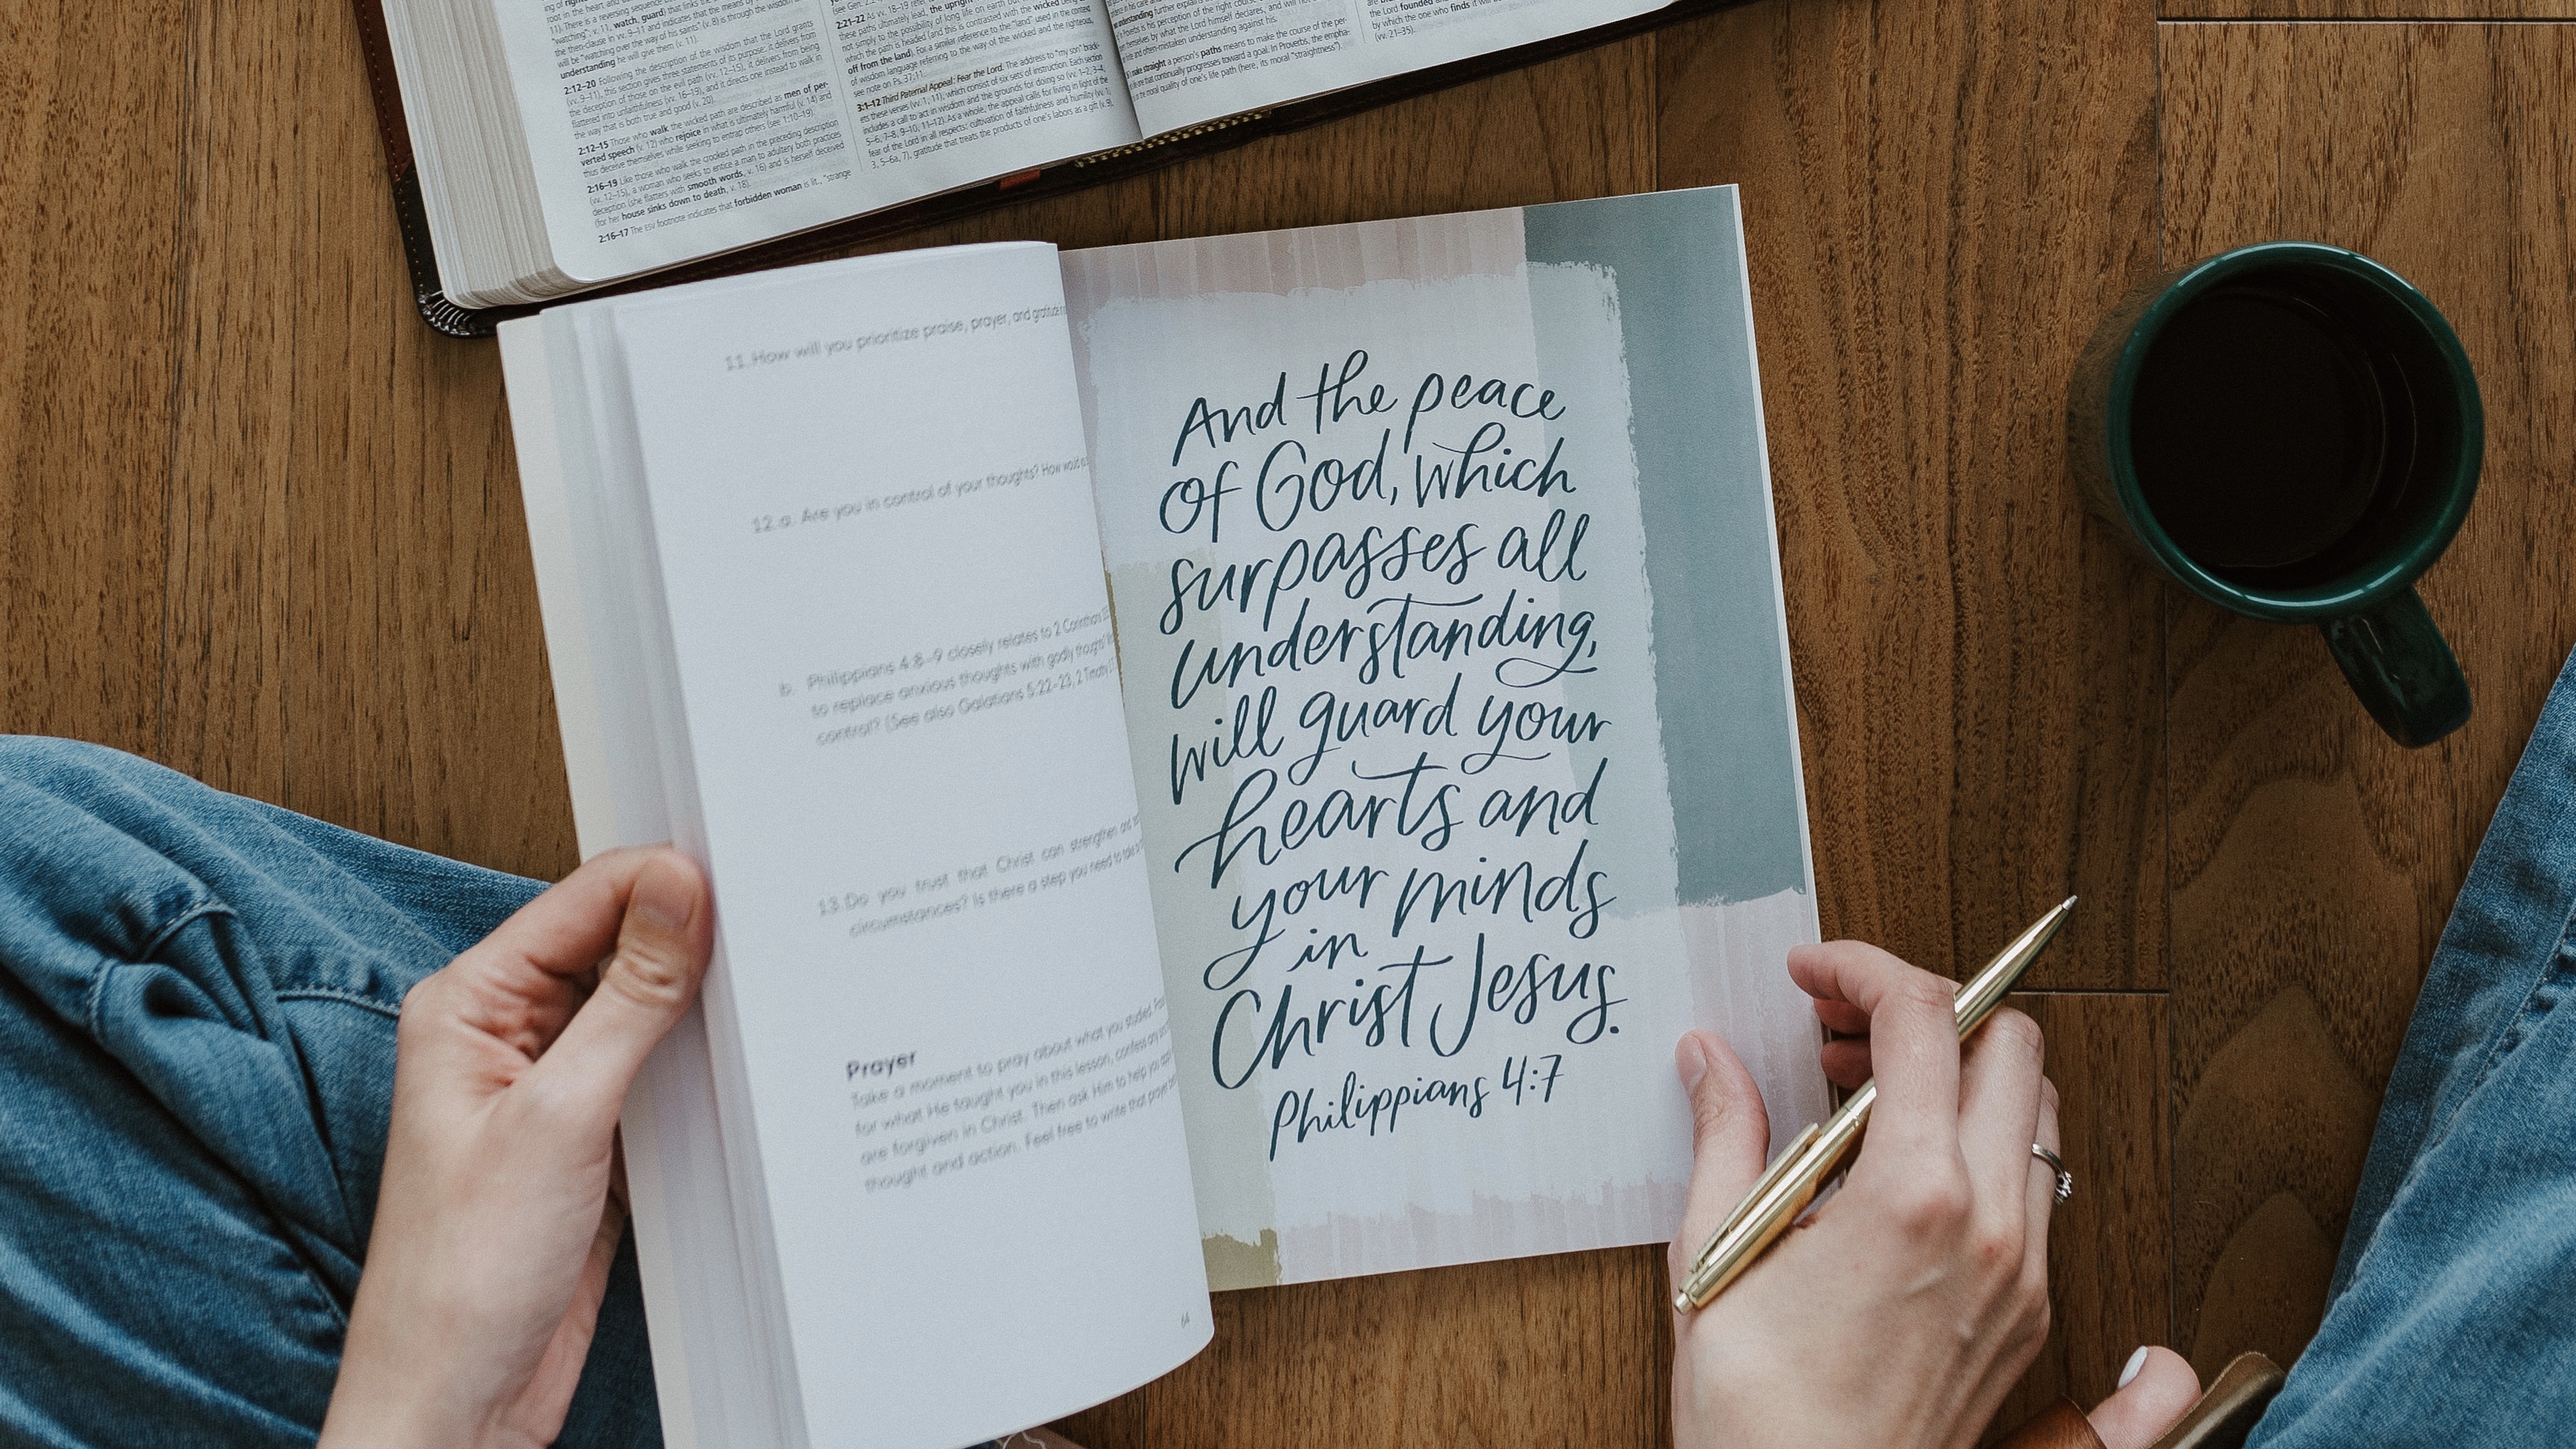 2:12–20 Following the description of the wisdom that the Lord grants
(vv. 9–11), this section gives three statements of its purpose: it delivers from
the deception of those on the evil path (vv. 12–15), it delivers from being
flattered into unfaithfulness (vv. 16–19), and it directs one instead to walk in
the way that is both true and good (v. 20).
2:12–15 Those who walk the wicked path are described as men of per-
verted speech (v. 12) who rejoice in what is ultimately harmful (v. 14) and
thus deceive themselves while seeking to entrap others (see 1:10–19).
2:16–19 Like those who walk the crooked path in the preceding description
(vv. 12–15), a woman who seeks to entice a man to adultery both practices
deception (she flatters with smooth words, v. 16) and is herself deceived
(for her house sinks down to death, v. 18).
2:16–17 The ESV footnote indicates that forbidden woman is lit., "strange
2:21–22 As vv. 18–19 refer
these paths ultimately lead, the upright
not simply to the possibility of long life on earth but
which the path is headed (and this is contrasted with the wicked being
off from the land). For a similar reference to the "land" used in the context
of wisdom language referring to the way of the wicked and the righteous,
see note on Ps. 37:11.
3:1–12 Third Paternal Appeal: Fear the Lord. The address to "my son" brack-
ets these verses (vv. 1, 11), which consist of six sets of instruction. Each section
includes a call to act in wisdom and the grounds for doing so (vv. 1–2, 3–4,
5–6, 7–8, 9–10, 11–12). As a whole, the appeal calls for living in light of the
fear of the Lord in all respects: cultivation of faithfulness and humility (vv. 1,
3, 5–6a, 7), gratitude that treats the products of one's labors as a gift (v. 9),
understanding further explains
make straight a person's paths means to make the course of the per-
that continually progresses toward a goal. In Proverbs, the empha-
moral quality of one's life path (here, its moral "straightness").
the Lord founded
by which the one who finds it will
(vv. 21–35).
11. How will you prioritize praise, prayer, and gratitude
12. a. Are you in control of your thoughts? How would
b. Philippians 4:8–9 closely relates to 2 Corinthians
to replace anxious thoughts with godly thoughts?
control? (See also Galatians 5:22–23, 2 Timothy
13. Do you trust that Christ can strengthen and
circumstances? Is there a step you need to take
Prayer
Take a moment to pray about what you studied.
for what He taught you in this lesson, confess any
are forgiven in Christ. Then ask Him to help you
thought and action. Feel free to write that prayer
64
And the peace
of God, which
surpasses all
understanding,
will guard your
hearts and
your minds
in
Christ Jesus.
Philippians 4:7